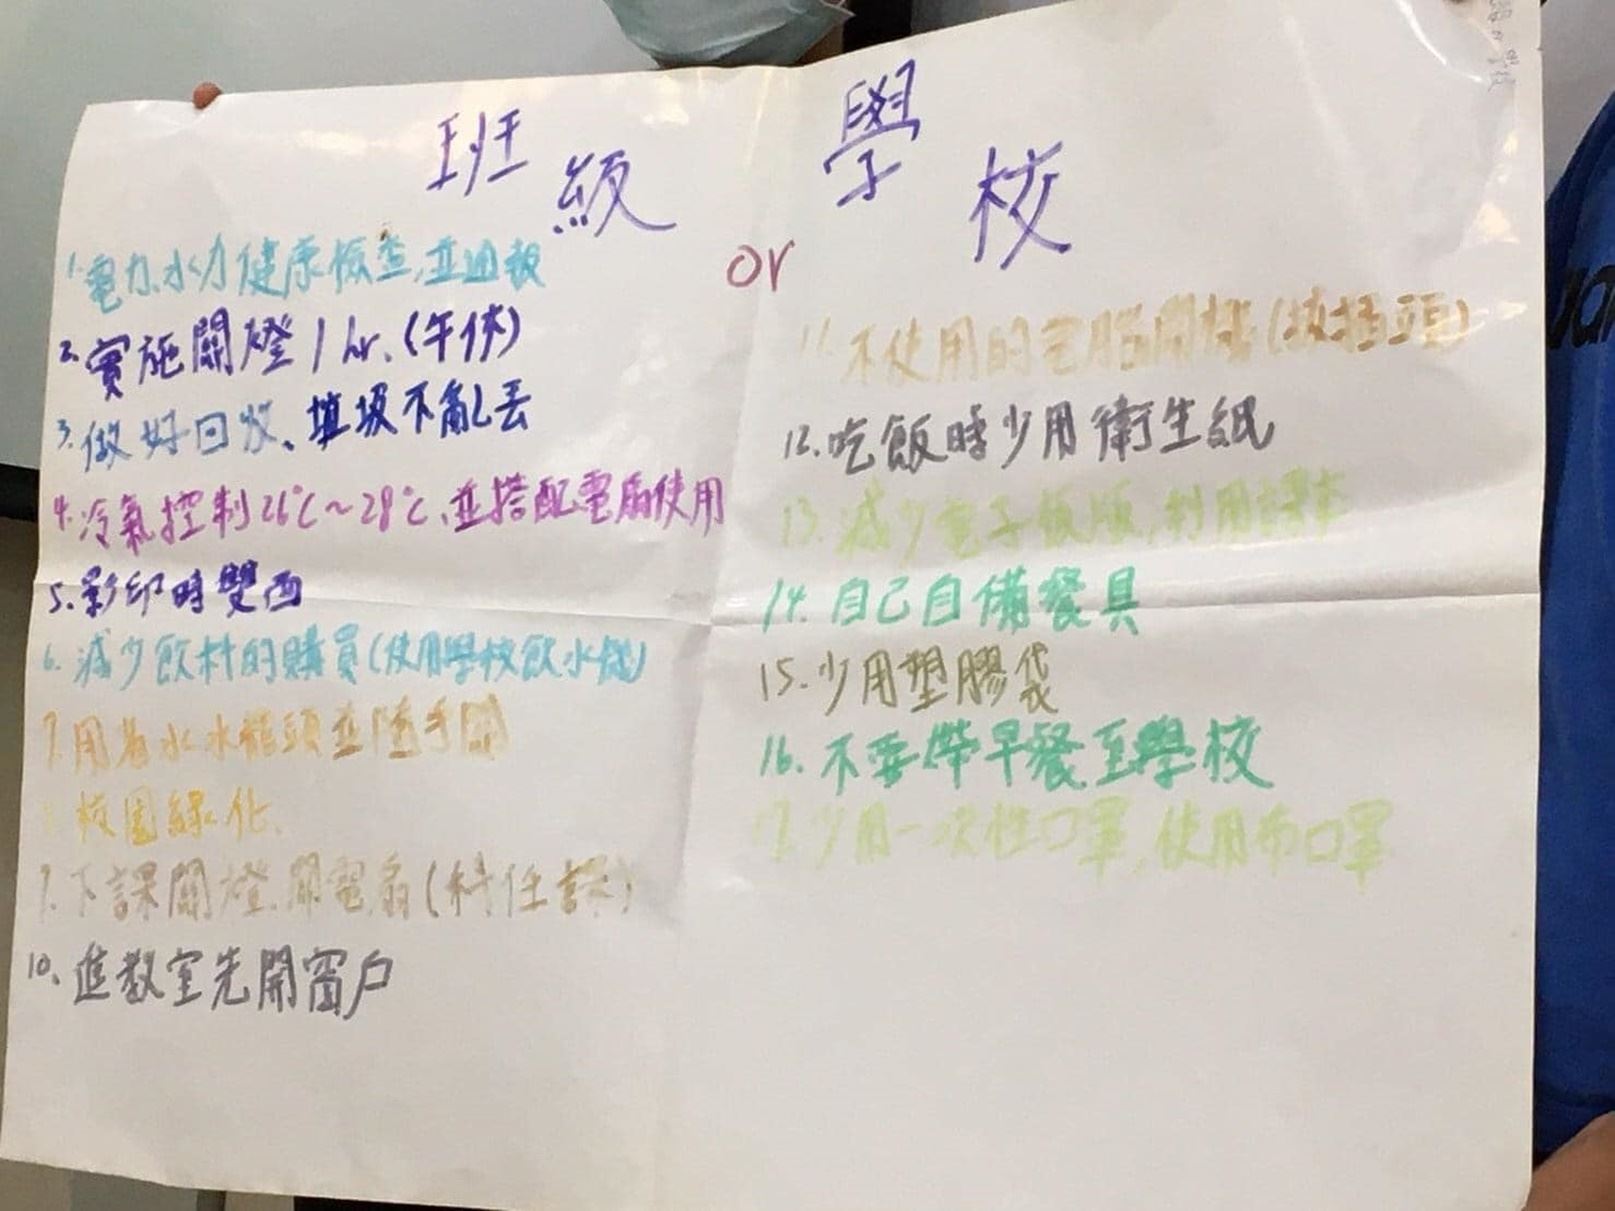 班級 or 學校
1. 電力、水力健康檢查,並通報
2. 實施關燈 1 hr. (午休)
3. 做好回收、垃圾不亂丟
4. 冷氣控制26℃~28℃,並搭配電扇使用
5. 影印時雙面
6. 減少飲料的購買(使用學校飲水機)
7. 用省水水龍頭並隨手關
8. 校園綠化.
9. 下課關燈.關電扇(科任課)
10、進教室先開窗戶
11. 不使用的電腦關機(拔插頭)
12. 吃飯時少用衛生紙
13. 減少電子紙版,利用課本
14. 自己自備餐具
15. 少用塑膠袋
16. 不要帶早餐至學校
17. 少用一次性口罩,使用布口罩